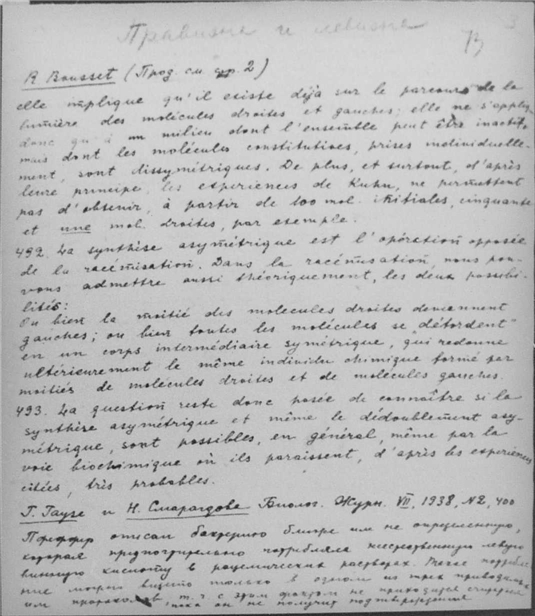 Правизна и левизна
R Bousset (Прод. см. стр. 2)
elle implique qu'il existe déjà sur le parcours de la
lumière des molécules droites et gauches; elle ne s'applique
donc qu'à un milieu dont l'ensemble peut être inactif,
mais dont les molécules constitutives, prises individuelle-
ment, sont dissymétriques. De plus, et surtout, d'après
leur principe, les expériences de Kuhn, ne permettent
pas d'obtenir, à partir de 100 mol. initiales, cinquante
et une mol. droites, par exemple.
492. La synthèse asymétrique est l'opération opposée
de la racémisation. Dans la racémisation, nous pou-
vons admettre aussi théoriquement, les deux possibi-
lités:
Ou bien la moitié des molecules droites deviennent
gauches; ou bien toutes les molécules se "détordent"
en un corps intermédiaire symétrique, qui redonne
ultérieurement le même individu chimique formé par
moitiés de molecules droites et de molecules gauches.
493. La question reste donc posée de connaître si la
synthèse asymétrique et même le dédoublement asy-
métrique, sont possibles, en général, même par la
voie biochimique où ils paraissent, d'après les expériences
citées, très probables.
Г. Гаузе и Н. Смарагдова Биолог. Журн. VII, 1938, N2, 400
Пфеффер описал бактерию ближе им не определенную,
которая предпочтительно потребляла левую
винную кислоту в рацемических растворах.
только в одном из трех
им т. ч. с этим фактом не приходится
пока он не получит подтверждения